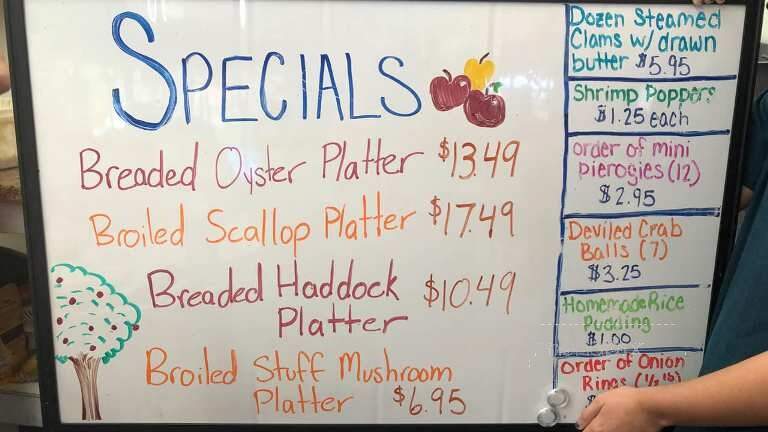 SPECIALS
Breaded Oyster Platter $13.49
Broiled Scallop Platter $17.49
Breaded Haddock $10.49
Platter
Broiled Stuff Mushroom
Platter $6.95
Dozen Steamed
Clams w/ drawn
butter $5.95
Shrimp Poppers
$1.25 each
order of mini
pierogies (12)
$2.95
Deviled Crab
Balls (7)
$3.25
Homemade Rice
Pudding
$1.00
order of Onion
Rings (1/2 lb)
$